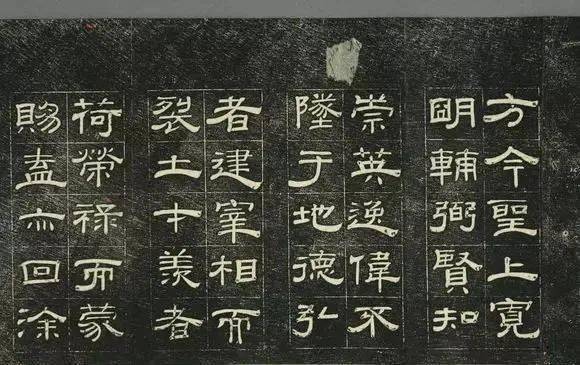 方今聖上寬
眀輔弼賢知
崇英逸偉不
墜于地德弘
者建宰相而
裂土才羨者
荷榮祿而蒙
賜盍亦回涂